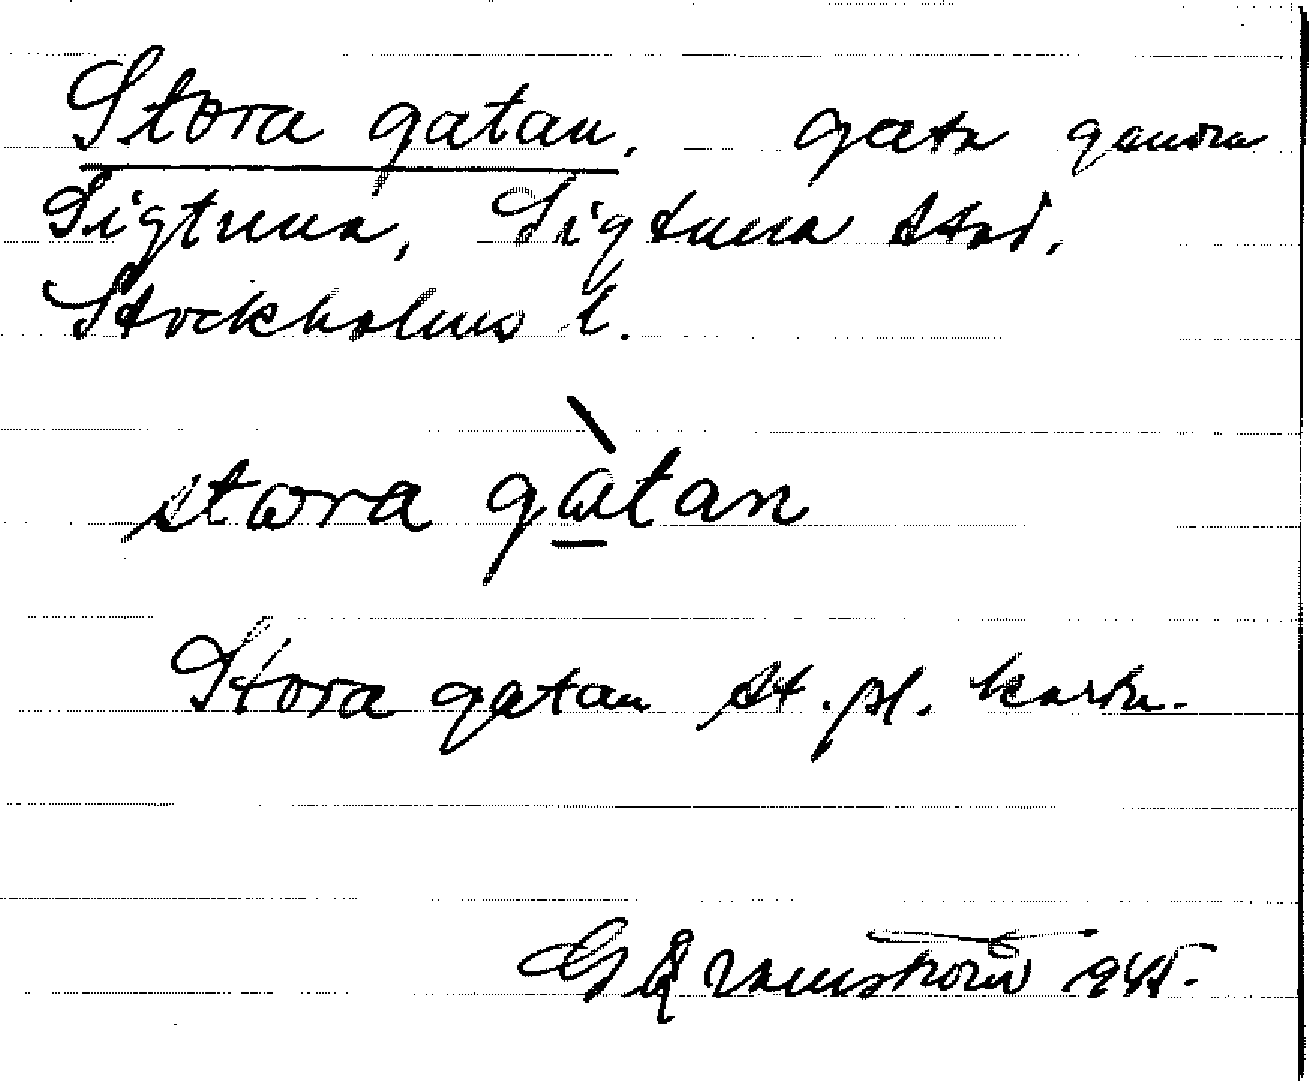 Stora gatan. Gata genom
Sigtuna, Sigtuna stad,
Stockholms l.
stωra gàtan
Stora gatan st. pl. karta.
1945.